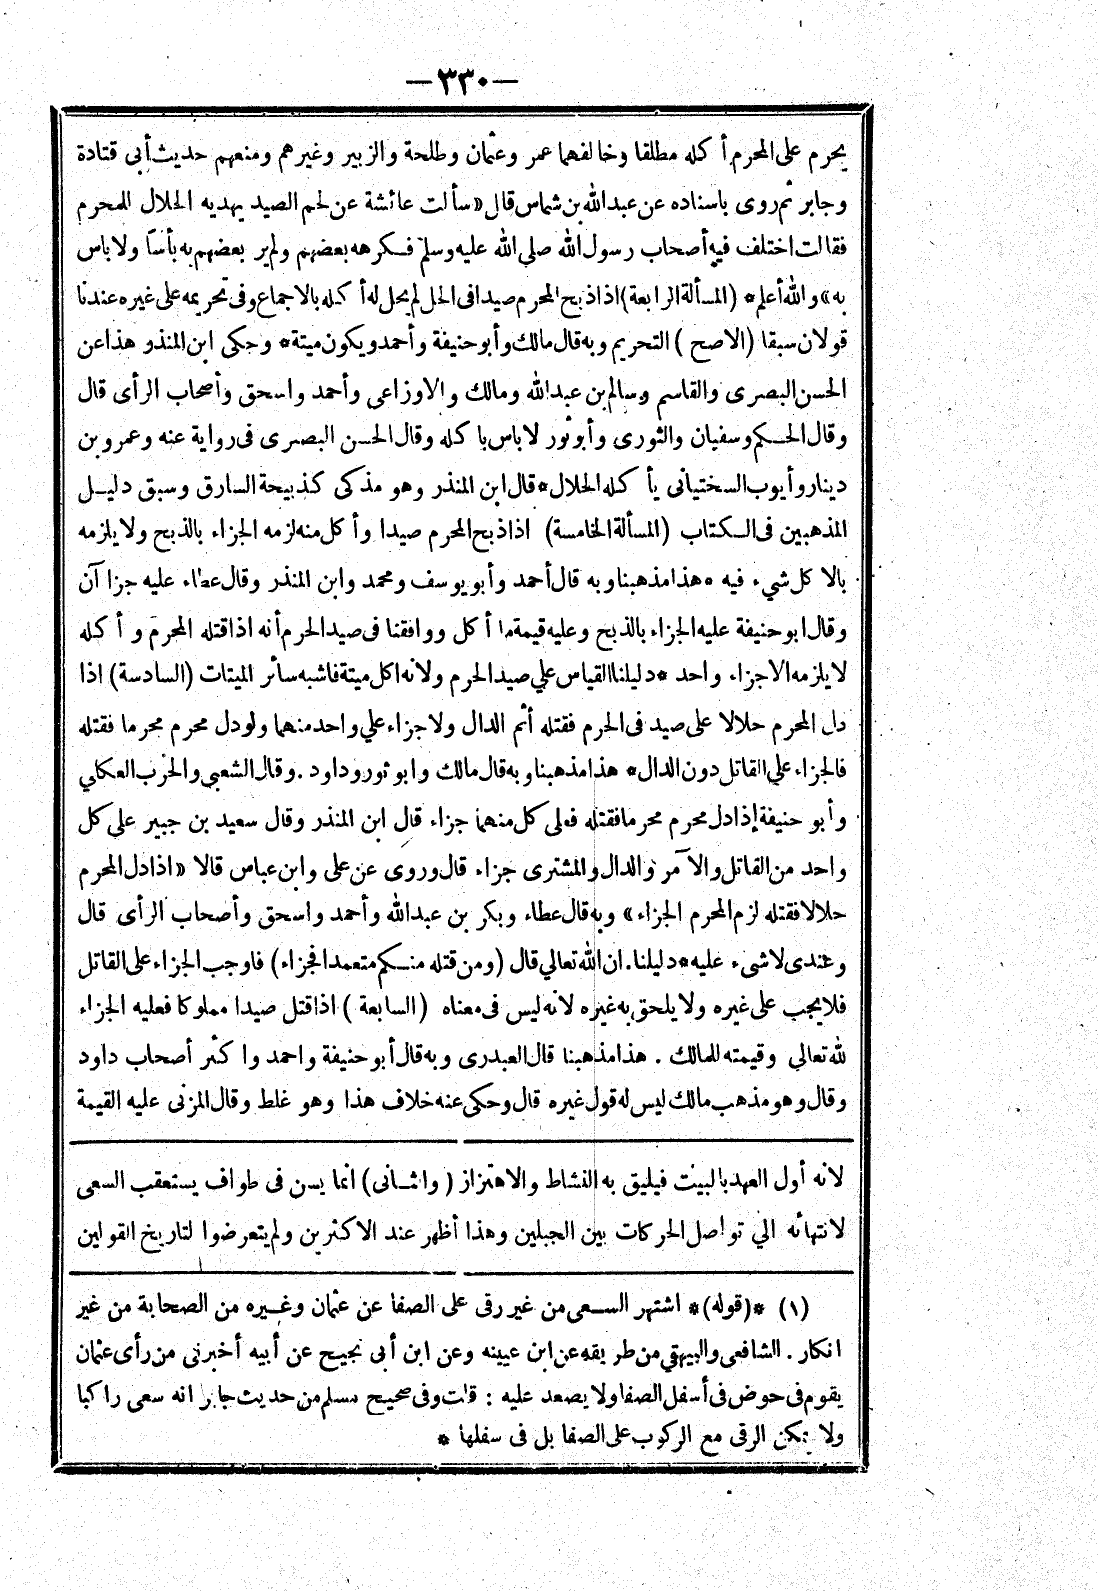 —٣٣٠—
يحرم على المحرم أكله مطلقا وخالفهما عمر وعثمان وطلحة والزبير وغيرهم ومنعهم حديث أبى قتادة
وجابر ثم روى باسناده عن عبد الله بن شماس قال «سألت عائشة عن لحم الصيد يهديه الحلال للمحرم
فقالت اختلف فيه أصحاب رسول الله صلي الله عليه وسلم فكرهه بعضهم ولم ير بعضهم به بأسا ولا باس
به» والله أعلم * (المسألة الرابعة) اذا ذبح المحرم صيدا فى الحل لم يحل له أكله بالاجماع وفى تحريمه على غيره عندنا
قولان سبقا (الاصح) التحريم وبه قال مالك وأبو حنيفة وأحمد ويكون ميتة * وحكى ابن المنذر هذا عن
الحسن البصرى والقاسم وسالم بن عبد الله ومالك والاوزاعى وأحمد واسحق وأصحاب الرأى قال
وقال الحكم وسفيان والثورى وأبو ثور لا باس باكله وقال الحسن البصرى فى رواية عنه وعمرو بن
دينار وأيوب السختيانى يأكله الحلال * قال ابن المنذر وهو مذكى كذبيحة السارق وسبق دليل
المذهبين فى الكتاب (المسألة الخامسة) اذا ذبح المحرم صيدا وأكل منه لزمه الجزاء بالذبح ولا يلزمه
بالاكل شيء فيه * هذا مذهبنا وبه قال أحمد وأبو يوسف ومحمد وابن المنذر وقال عطاء عليه جزاآن
وقال ابو حنيفة عليه الجزاء بالذبح وعليه قيمة ما أكل ووافقنا فى صيد الحرم أنه اذا قتله المحرم وأكله
لا يلزمه الا جزاء واحد * دليلنا القياس علي صيد الحرم ولانه اكل ميتة فاشبه سائر الميتات (السادسة) اذا
دل المحرم حلالا على صيد فى الحرم فقتله أثم الدال ولا جزاء علي واحد منهما ولو دل محرم محرما فقتله
فالجزاء علي القاتل دون الدال * هذا مذهبنا وبه قال مالك وابو ثور وداود . وقال الشعبي والحرب العكلي
وأبو حنيفة إذا دل محرم محرما فقتله فعلى كل منهما جزاء قال ابن المنذر وقال سعيد بن جبير على كل
واحد من القاتل والآمر والدال والمشترى جزاء قال وروى عن على وابن عباس قالا «اذا دل المحرم
حلالا فقتله لزم المحرم الجزاء» وبه قال عطاء وبكر بن عبد الله وأحمد واسحق وأصحاب الرأى قال
وعندى لا شيء عليه * دليلنا . ان الله تعالي قال (ومن قتله منكم متعمدا فجزاء) فاوجب الجزاء على القاتل
فلا يجب على غيره ولا يلحق به غيره لانه ليس فى معناه (السابعة) اذا قتل صيدا مملوكا فعليه الجزاء
لله تعالي وقيمته للمالك . هذا مذهبنا قال العبدرى وبه قال أبو حنيفة واحمد واكثر أصحاب داود
وقال وهو مذهب مالك ليس له قول غيره قال وحكى عنه خلاف هذا وهو غلط وقال المزنى عليه القيمة
لانه أول العهد بالبيت فيليق به النشاط والاهتزاز (والثانى) انما يسن فى طواف يستعقب السعى
لانتهائه الي تواصل الحركات بين الجبلين وهذا أظهر عند الاكثرين ولم يتعرضوا لتاريخ القولين
(١) *(قوله)* اشتهر السعى من غير رقى على الصفا عن عثمان وغيره من الصحابة من غير
انكار . الشافعى والبيهقي من طريقه عن ابن عيينه وعن ابن أبى نجيح عن أبيه أخبرنى من رأى عثمان
يقوم فى حوض فى أسفل الصفا ولا يصعد عليه : قلت وفى صحيح مسلم من حديث جابر انه سعى راكبا
ولا يمكن الرقى مع الركوب على الصفا بل فى سفلها *